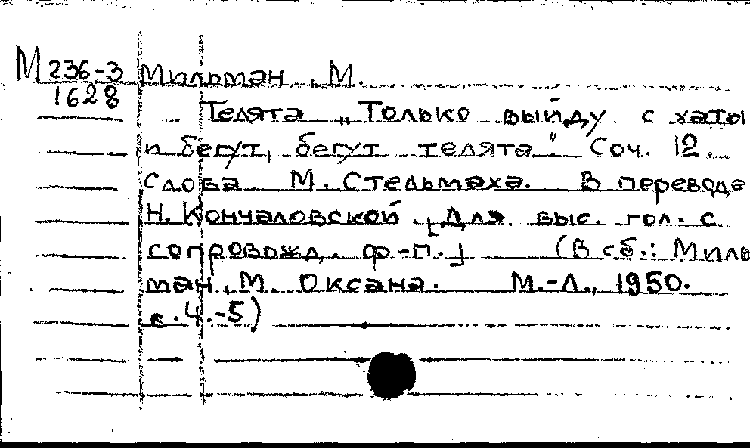 М 236-3 Мильман, М.
1628
Телята „Только выйду с хаты
и бегут, бегут телята". Соч. 12.
Слова М. Стельмаха. В переводе
Н. Кончаловской. [Для выс. гол. с
сопровожд. ф-п.] (В сб.: Миль
ман, М. Оксана. М.-Л., 1950.
с. 4.-5)